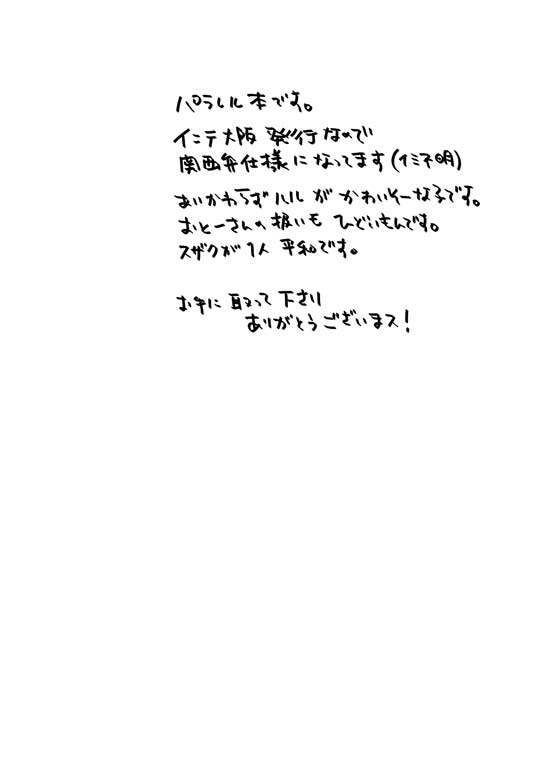 パラレル本です。
インテ大阪発行なので
関西弁仕様になってます(イミ不明)
あいかわらずルルがかわいそーな子です。
おとーさんの扱いもひどいもんです。
スザクが1人平和です。
お手に取って下さり
ありがとうございまス!